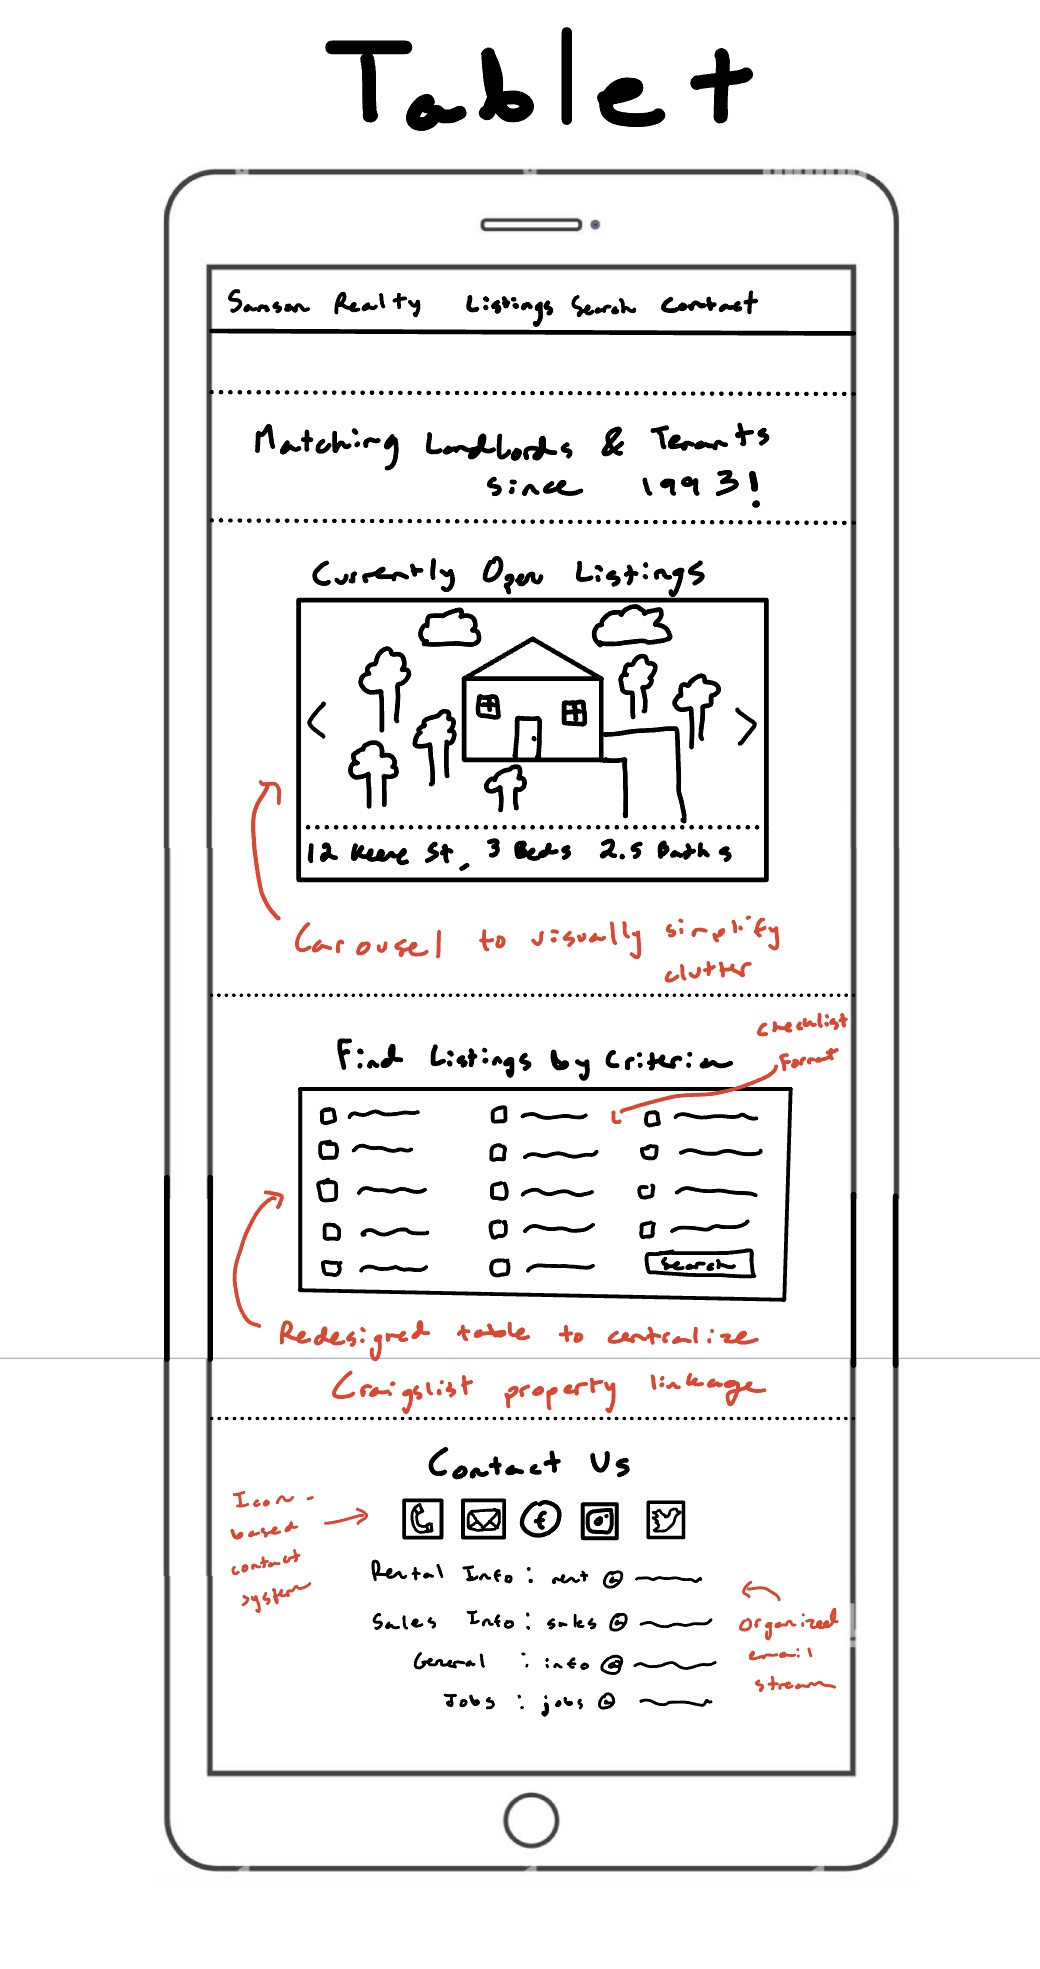 Tablet
Samson Realty Listings Search Contact
Matching Landlords & Tenants
since 1993!
Currently Open Listings
< >
12 Keene St, 3 Beds 2.5 Baths
Carousel to visually simplify
clutter
Checklist
Format
Find Listings by Criteria
Search
Redesigned table to centralize
Craigslist property linkage
Contact Us
Icon-
based
contact
system
Rental Info: rent @
Sales Info: sales @
General : info @
Jobs : jobs @
organized
email
stream